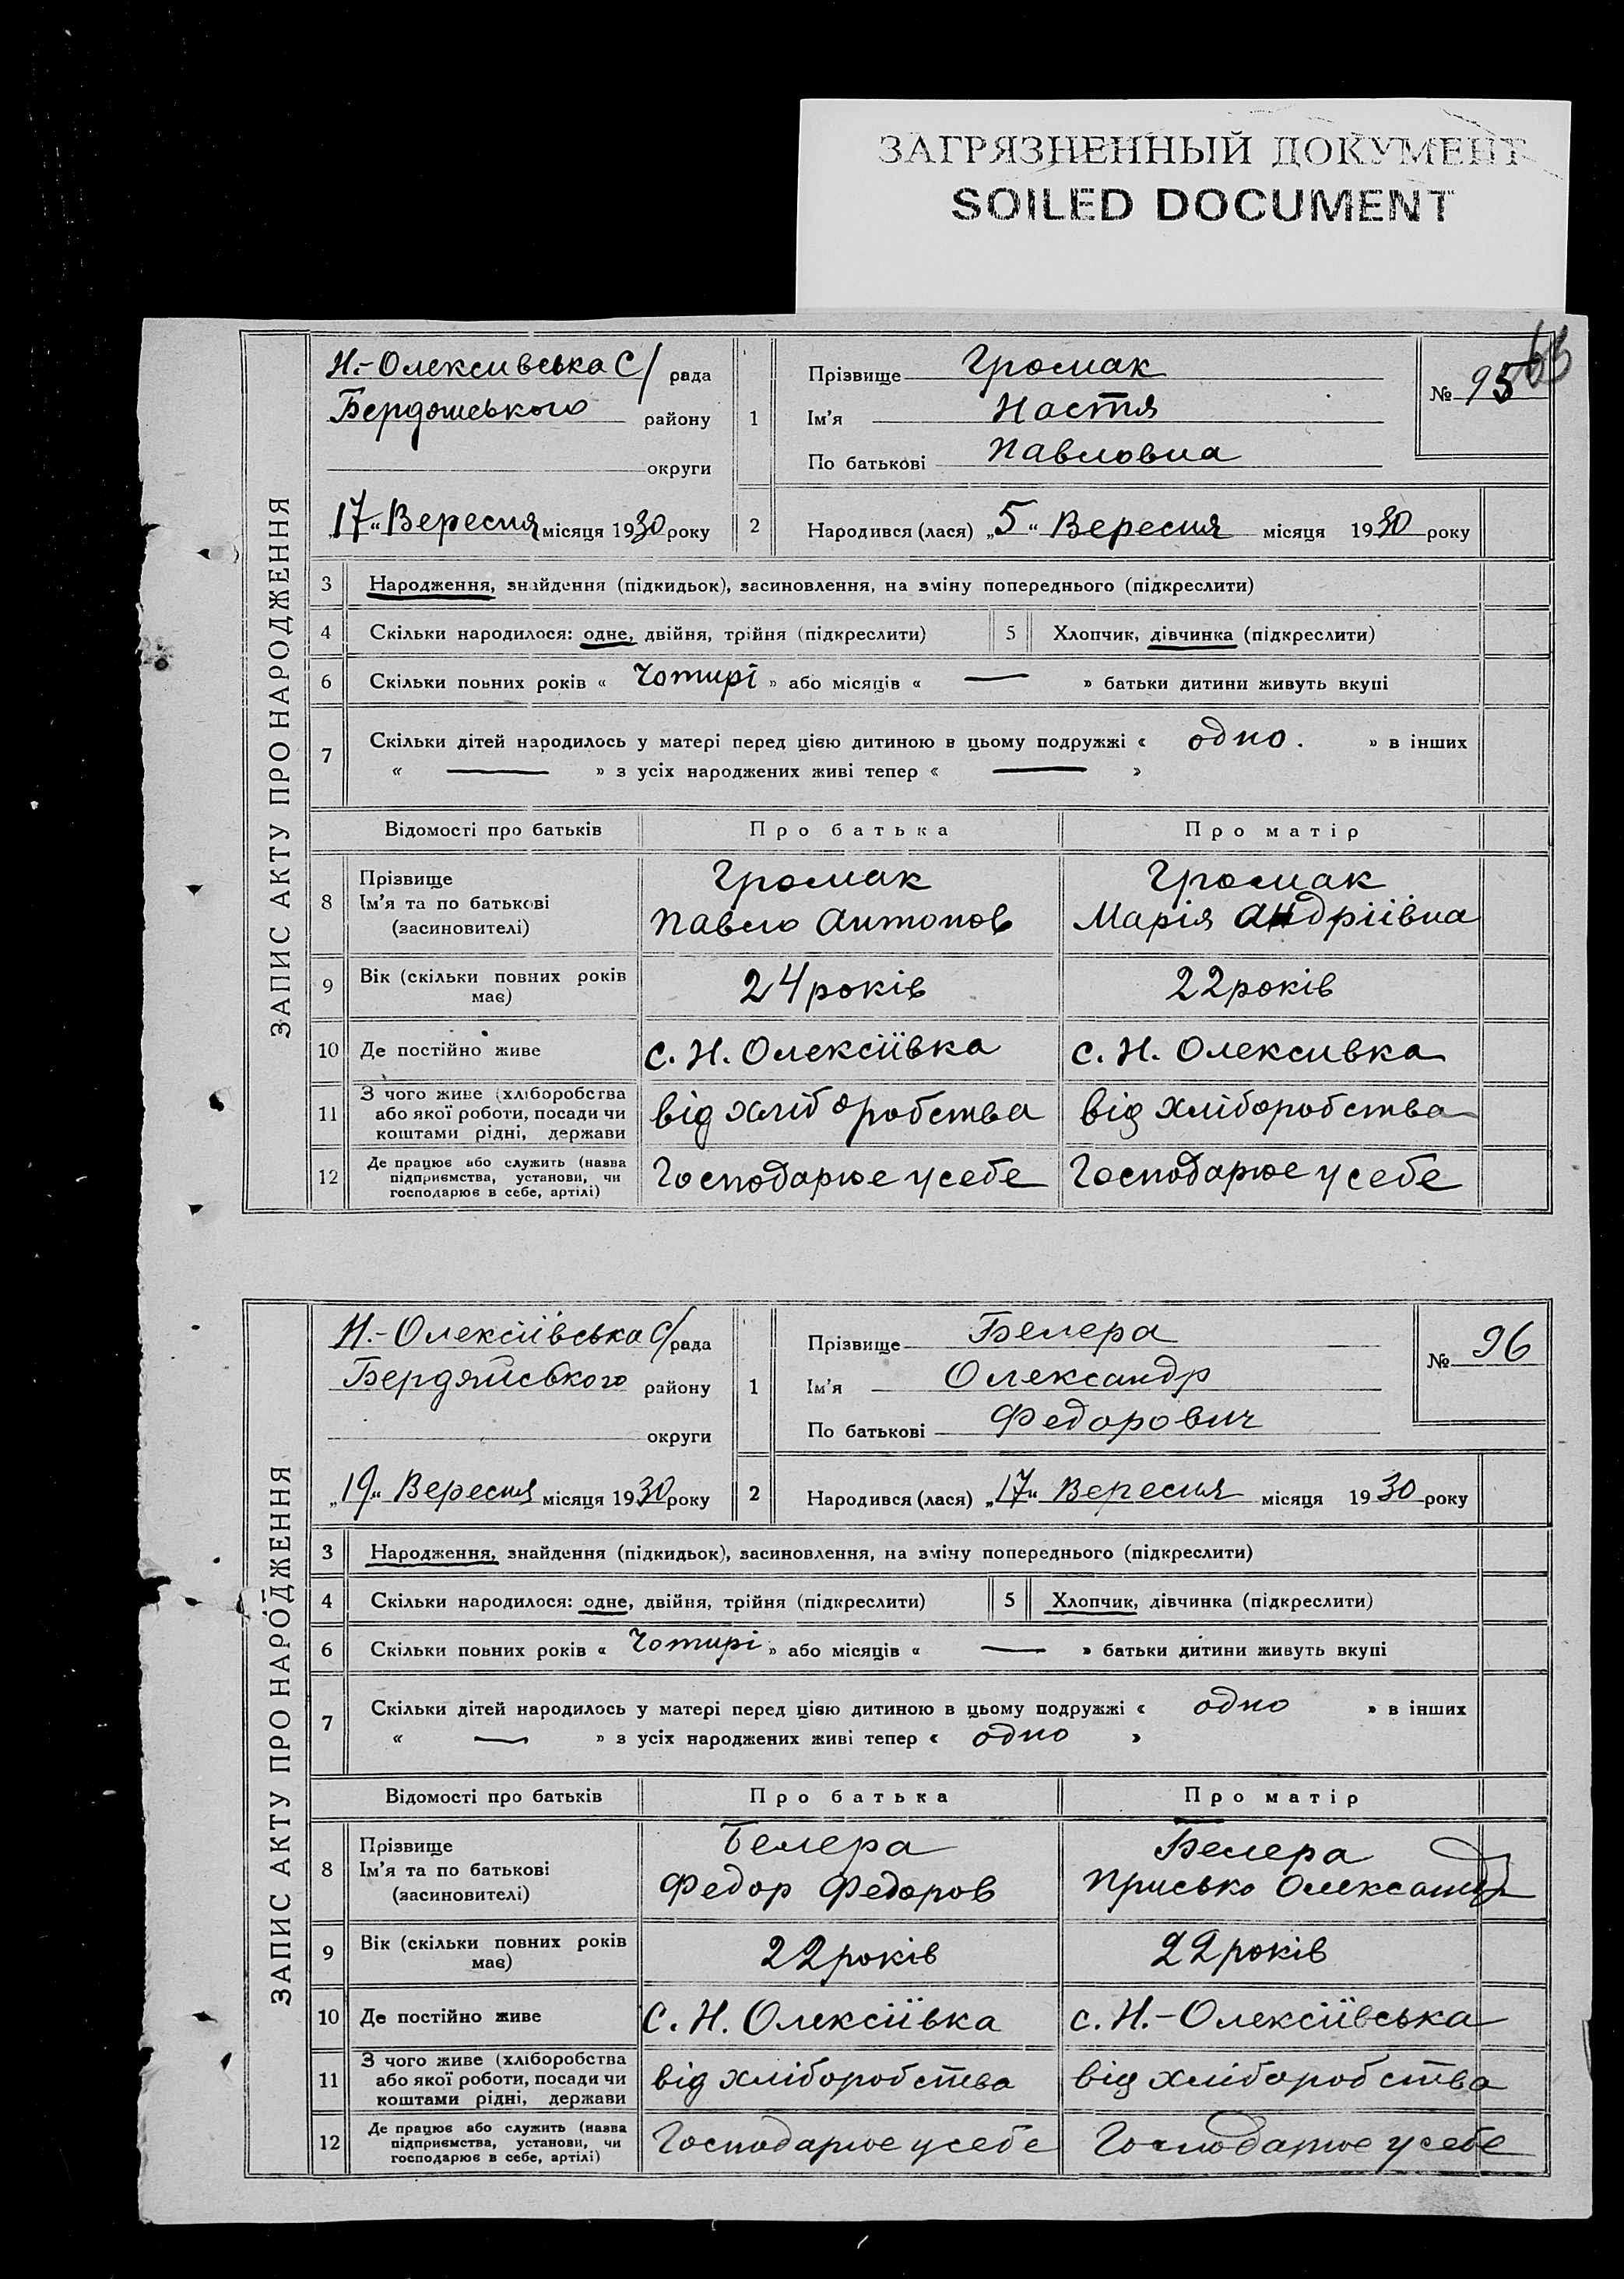 ЗАГРЯЗНЕННЫЙ ДОКУМЕНТ
SOILED DOCUMENT
63
ЗАПИС АКТУ ПРО НАРОДЖЕННЯ
Н.-Олексивська С/рада
Бердянського району
округи
„17“ Вересня місяця 1930 року
1
Прізвище Громак
Ім'я Настя
По батькові Павловна
№ 95
2 Народився (лася) „5“ Вересня місяця 1930 року
3 Народження, знайдення (підкидьок), засиновлення, на зміну попереднього (підкреслити)
4 Скільки народилося: одне, двійня, трійня (підкреслити) 5 Хлопчик, дівчинка (підкреслити)
6 Скільки повних років « Чотирі » або місяців « — » батьки дитини живуть вкупі
7 Скільки дітей народилось у матері перед цією дитиною в цьому подружжі « одно. » в інших
« — » з усіх народжених живі тепер « — »
Відомості про батьків Про батька Про матір
8 Прізвище Громак Громак
Ім'я та по батькові Павло Антонов Марія Андріівна
(засновителі)
9 Вік (скільки повних років має) 24 років 22 років
10 Де постійно живе с. Н. Олексіївка с. Н. Олексивка
11 З чого живе (хліборобства
або якої роботи, посади чи від хліборобства від хліборобства
коштами рідні, держави
12 Де працює або служить (назва
підприємства, установи, чи Господарює у себе Господарює у себе
господарює в себе, артілі)
ЗАПИС АКТУ ПРО НАРОДЖЕННЯ
Н.-Олексіївська С/рада
Бердянського району
округи
„19“ Вересня місяця 1930 року
1
Прізвище Белера
Ім'я Олександр
По батькові Федорович
№ 96
2 Народився (лася) „17“ Вересня місяця 1930 року
3 Народження, знайдення (підкидьок), засиновлення, на зміну попереднього (підкреслити)
4 Скільки народилося: одне, двійня, трійня (підкреслити) 5 Хлопчик, дівчинка (підкреслити)
6 Скільки повних років « Чотирі » або місяців « — » батьки дитини живуть вкупі
7 Скільки дітей народилось у матері перед цією дитиною в цьому подружжі « одно » в інших
« — » з усіх народжених живі тепер « одно »
Відомості про батьків Про батька Про матір
8 Прізвище Белера Белера
Ім'я та по батькові Федор Федоров Присько Олександр
(засиновителі)
9 Вік (скільки повних років має) 22 років 22 років
10 Де постійно живе С. Н. Олексіївка с. Н.-Олексіївська
11 З чого живе (хліборобства
або якої роботи, посади чи від хліборобства від хліборобства
коштами рідні, держави
12 Де працює або служить (назва
підприємства, установи, чи Господарює у себе Господарює у себе
господарює в себе, артілі)